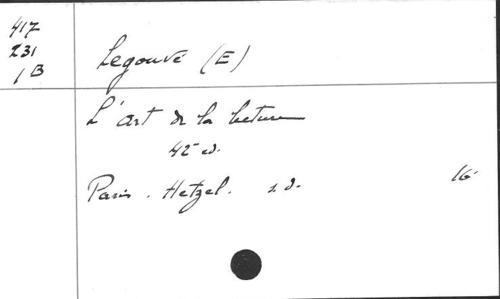 417
231
1 B
Legouvé (E)
L'art de la lecture
42e éd.
Paris. Hetzel. s. d. 16